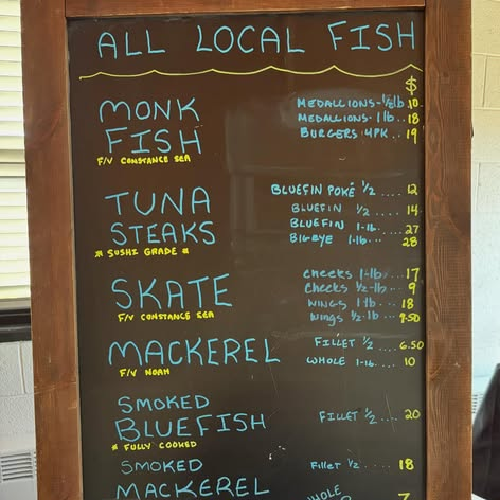 ALL LOCAL FISH
$
MONK FISH
F/V CONSTANCE SEA
MEDALLIONS-½lb 10
MEDALLIONS-1lb.. 18
BURGERS 4PK.. 19
TUNA STEAKS
* SUSHI GRADE *
BLUEFIN POKÉ ½.... 12
BLUEFIN ½.... 14
BLUEFIN 1-lb... 27
BIGEYE 1-lb... 28
SKATE
F/V CONSTANCE SEA
Cheeks 1-lb...17
Cheeks ½-lb.. 9
WINGS 1lb.. 18
Wings ½-lb 9.50
MACKEREL
F/V NOAH
FILLET ½.... 6.50
WHOLE 1-lb.. 10
SMOKED BLUEFISH
* FULLY COOKED
FILLET ½... 20
SMOKED MACKEREL
Fillet ½.... 18
WHOLE 7